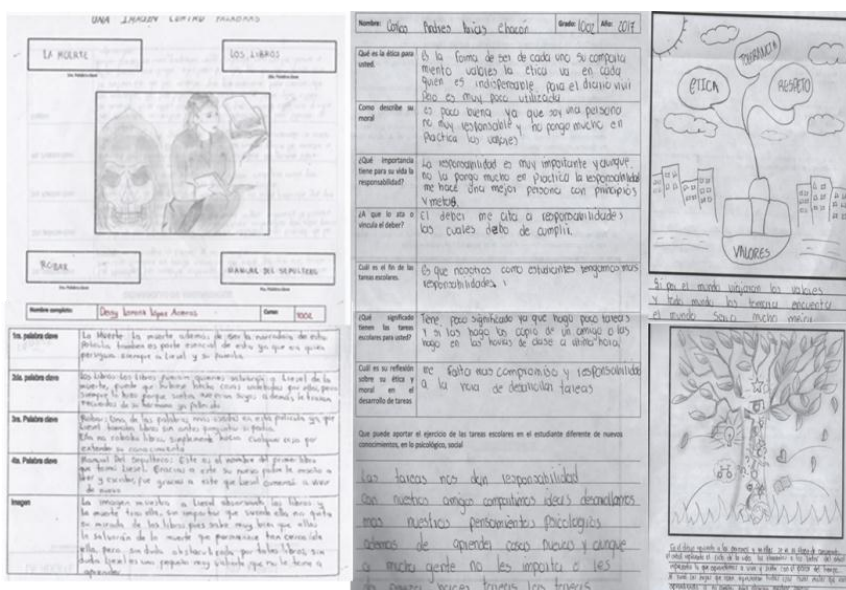 UNA IMAGEN CUATRO PALABRAS
LA MUERTE
LOS LIBROS
1ra. Palabra clave
2da. Palabra clave
ROBAR
MANUAL DEL SEPULTERO
Nombre completo: Deisy Lorena López
Curso: 1002
1ra. palabra clave
La Muerte: La muerte además de ser la narradora de esta
película, también es parte esencial de esta ya que es quien
persigue siempre a Liesel y su familia
2da. palabra clave
Los Libros: Los libros fueron quienes salvaron a Liesel de la
muerte, puede que hubiera hecho cosas indebidas por ellos pero
siempre lo hizo porque
recuerdos de su hermano ya fallecido
3ra. Palabra clave
Robar: Una de las palabras más usadas en esta película ya que
Liesel tomaba libros sin antes preguntar si podía.
Ella no robaba libros, simplemente hacía cualquier cosa por
extender su conocimiento
4ta. Palabra clave
Manual Del Sepultero: Este es el nombre del primer libro
que tomó Liesel. Gracias a este su nuevo padre le enseño a
leer y escribir, fue gracias a este que Liesel comenzó a vivir
de nuevo
Imagen
La imagen muestra a Liesel observando los libros y
la muerte tras ella, sin importar que suceda ella no quita
su mirada de los libros pues sabe muy bien que ellos
la salvarán de la muerte que permanece tan cerca de
ella, pero sin duda por tales libros, sin
duda Liesel es una pequeña muy valiente que no le teme a
aprender
Nombre: Carlos Andres Arias chacón Grado: 1002 Año: 2017
Qué es la ética para usted.
Es la forma de ser de cada uno su comporta
miento valores la etica va en cada
quien es indispensable para el diario vivir
Pero es muy poco utilizada
Como describe su moral
es poco buena ya que soy una persona
no muy responsable y no pongo mucho en
Practica los valores
¿Qué importancia tiene para su vida la responsabilidad?
La responsabilidad es muy importante y aunque
no la pongo mucho en practica la responsabilidad
me hace una mejor persona con principios
y metas.
¿A que lo ata o vincula el deber?
El deber me ata a responsabilidades
las cuales debo de cumplir.
Cuál es el fin de las tareas escolares.
Es que nosotros como estudiantes tengamos mas
responsabilidades.
¿Qué significado tienen las tareas escolares para usted?
Tiene poco significado ya que hago poco tareas
y si las hago las copio de un amigo o las
hago en las horas de clase a ultima hora
Cuál es su reflexión sobre su ética y moral en el desarrollo de tareas
me falta mas compromiso y responsabilidad
a la hora de desarrollar tareas
Que puede aportar el ejercicio de las tareas escolares en el estudiante diferente de nuevos
conocimientos, en lo psicológico, social
Las tareas nos dan responsabilidad
Con nuestros amigos compartimos ideas desarrollamos
mas nuestros pensamientos Psicologicos
ademas de aprender cosas nuevas y aunque
a mucha gente no les importa o les
hacer tareas las tareas
ÉTICA
TOLERANCIA
RESPETO
VALORES
Si por el mundo viajaran los valores
y todo mundo los tomara encuenta
el mundo seria mucho mejor